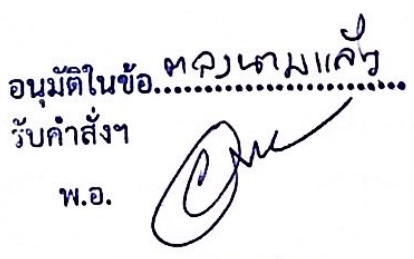 อนุมัติในข้อ ๓ ลงนามแล้ว
รับคำสั่งฯ
พ.อ.